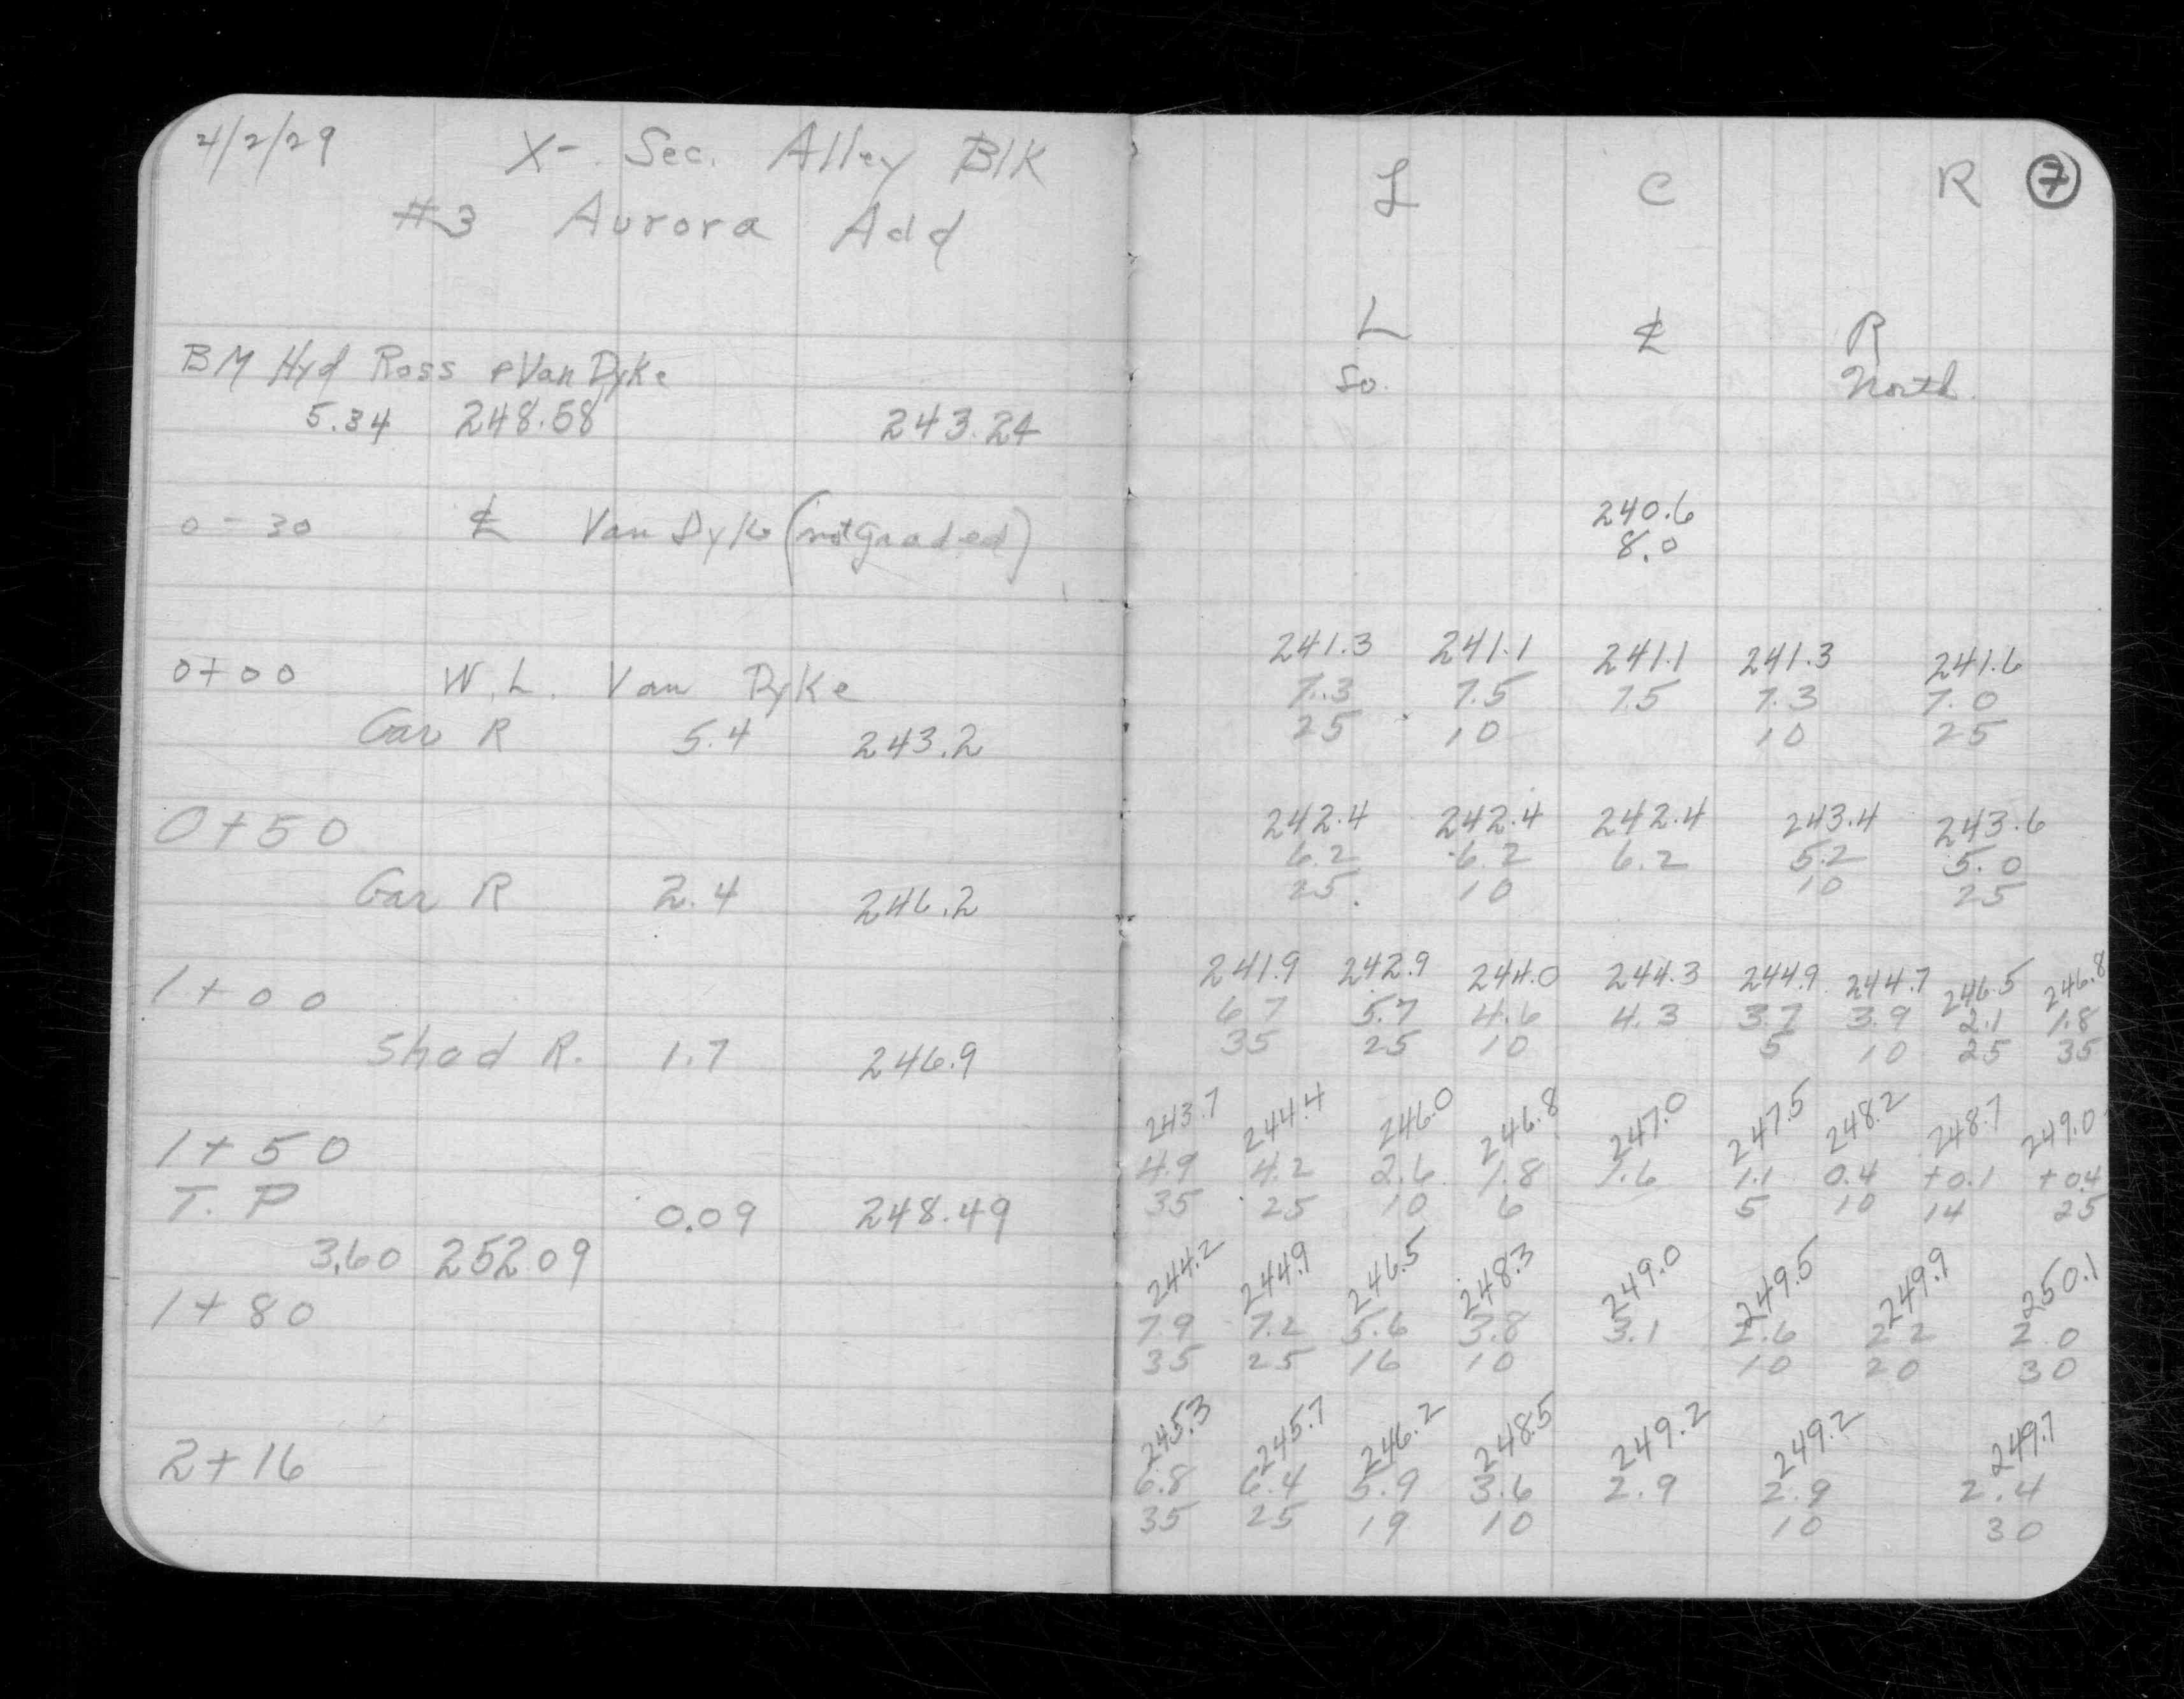 4/2/29 X- Sec. Alley Blk
#3 Aurora Add
BM Hyd Ross & Van Dyke
5.34 248.58 243.24
0-30 ℄ Van Dyke (not graded)
0+00 W.L. Van Dyke
Gar R 5.4 243.2
0+50
Gar R 2.4 246.2
1+00
Shed R. 1.7 246.9
1+50
T.P 0.09 248.49
3.60 252.09
1+80
2+16
L C R 7
L ℄ R
So. North
240.6
8.0
241.3 241.1 241.1 241.3 241.6
7.3 7.5 7.5 7.3 7.0
25 10 10 25
242.4 242.4 242.4 243.4 243.6
6.2 6.2 6.2 5.2 5.0
25 10 10 25
241.9 242.9 244.0 244.3 244.9 244.7 246.5 246.8
6.7 5.7 4.6 4.3 3.7 3.9 2.1 1.8
35 25 10 5 10 25 35
243.7 244.4 246.0 246.8 247.0 247.5 248.2 248.7 249.0
4.9 4.2 2.6 1.8 1.6 1.1 0.4 +0.1 +0.4
35 25 10 6 5 10 14 25
244.2 244.9 246.5 248.3 249.0 249.5 249.9 250.1
7.9 7.2 5.6 3.8 3.1 2.6 2.2 2.0
35 25 16 10 10 20 30
245.3 245.7 246.2 248.5 249.2 249.2 249.7
6.8 6.4 5.9 3.6 2.9 2.9 2.4
35 25 19 10 10 30